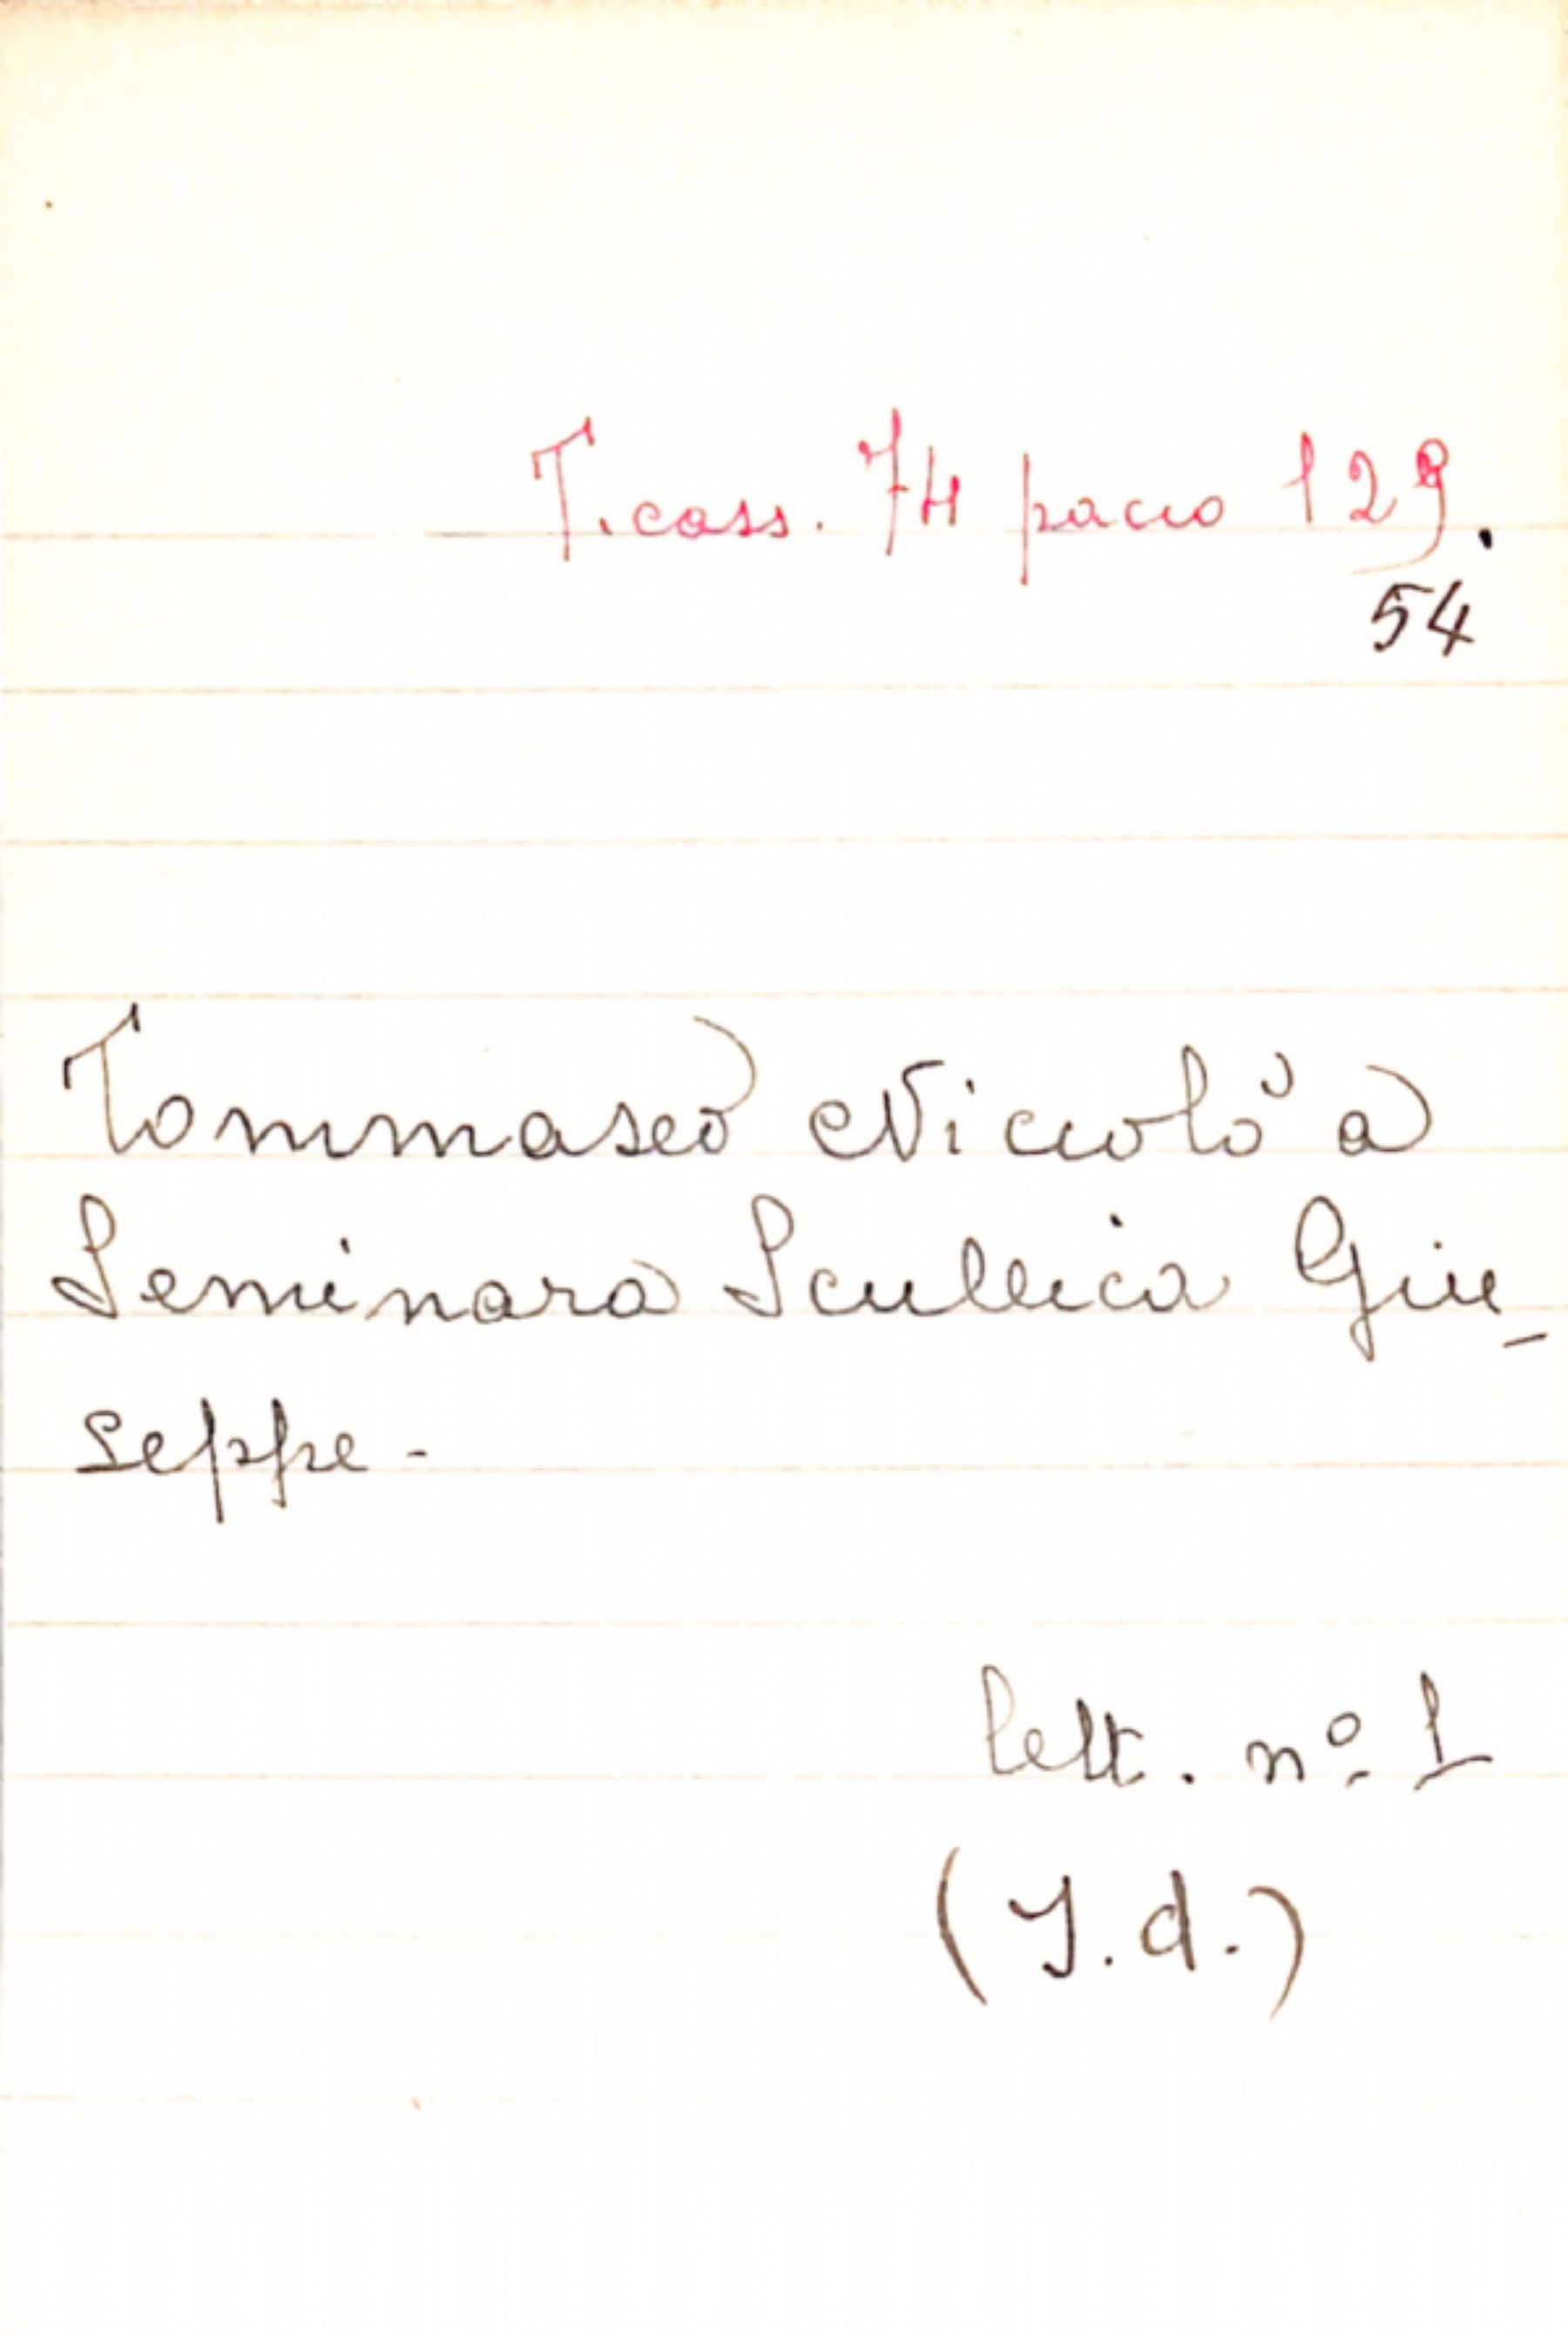 T. cass. 74 pacco 129.
54
Tommaseo Niccolò a
Seminara Scullica Giu-
seppe -
lett. nº 1
(I.d.)